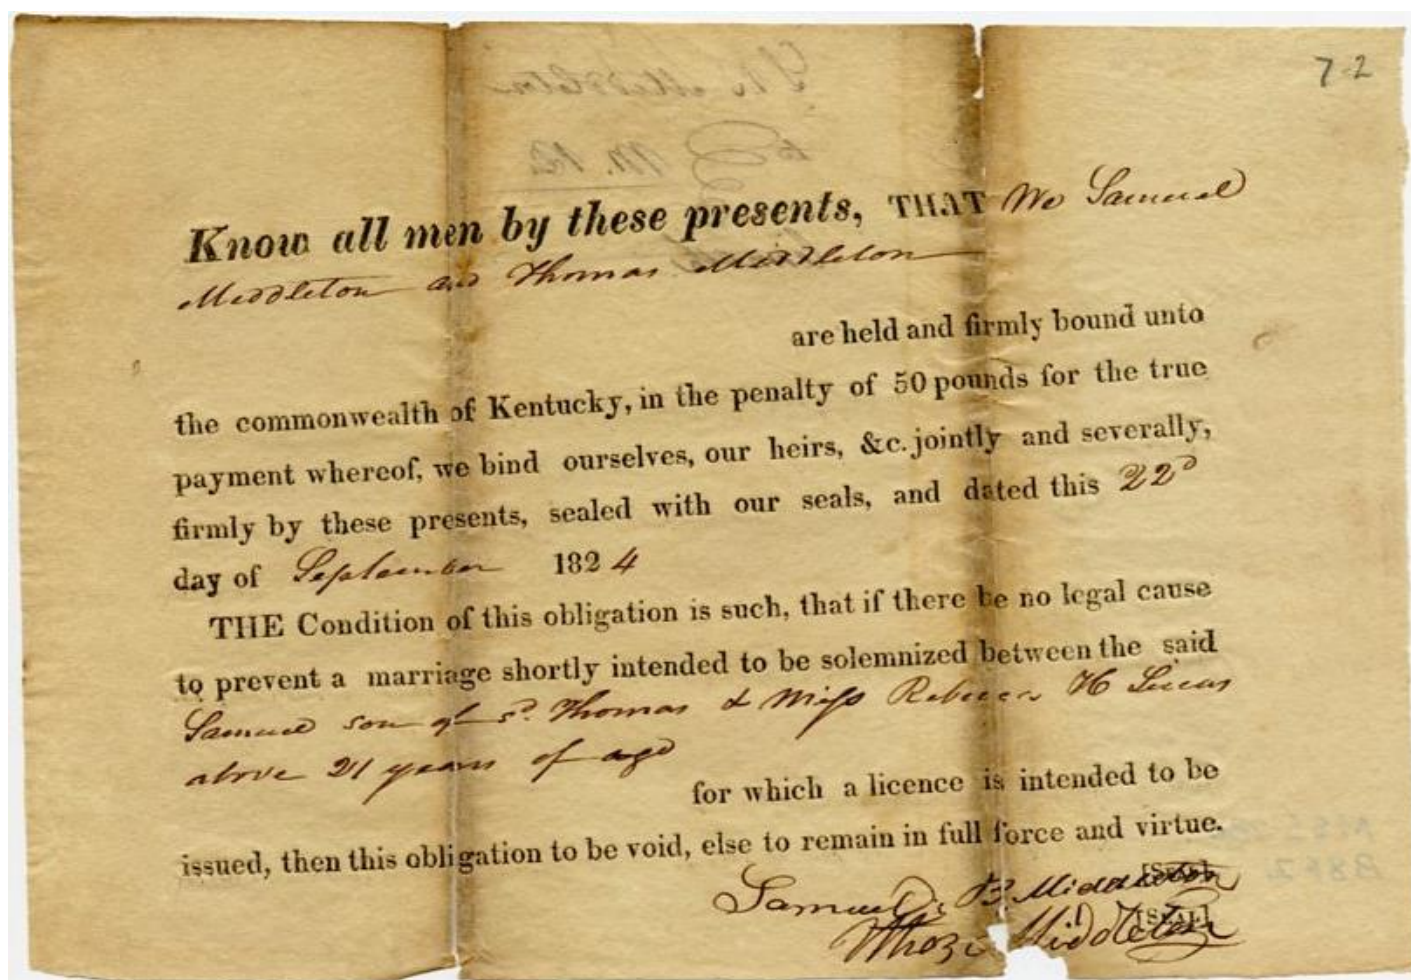 7-2
Know all men by these presents, THAT We Samuel
Middleton and Thomas Middleton
are held and firmly bound unto
the commonwealth of Kentucky, in the penalty of 50 pounds for the true
payment whereof, we bind ourselves, our heirs, &c. jointly and severally,
firmly by these presents, sealed with our seals, and dated this 22d
day of September 1824
THE Condition of this obligation is such, that if there be no legal cause
to prevent a marriage shortly intended to be solemnized between the said
Samuel son of sd. Thomas & Miss Rebecca H Lucas
above 21 years of age
for which a licence is intended to be
issued, then this obligation to be void, else to remain in full force and virtue.
Samuel B. Middleton [SEAL]
Thos. Middleton [SEAL]